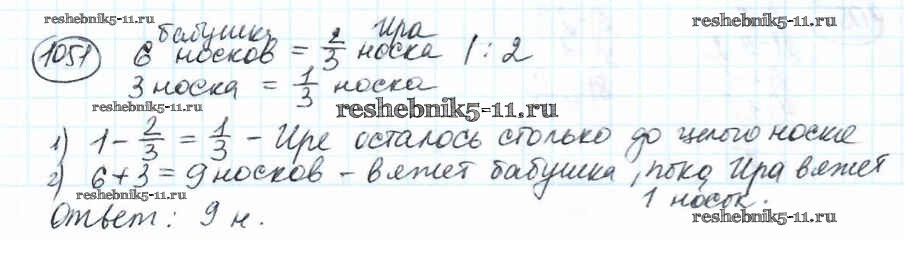 reshebnik5-11.ru reshebnik5-11.ru
бабушка Ира
1051 6 носков = 2/3 носка | : 2
3 носка = 1/3 носка
reshebnik5-11.ru reshebnik5-11.ru
1) 1 - 2/3 = 1/3 - Ире осталось столько до целого носка
2) 6 + 3 = 9 носков - вяжет бабушка, пока Ира вяжет
reshebnik5-11.ru 1 носок.
Ответ: 9 н. reshebnik5-11.ru